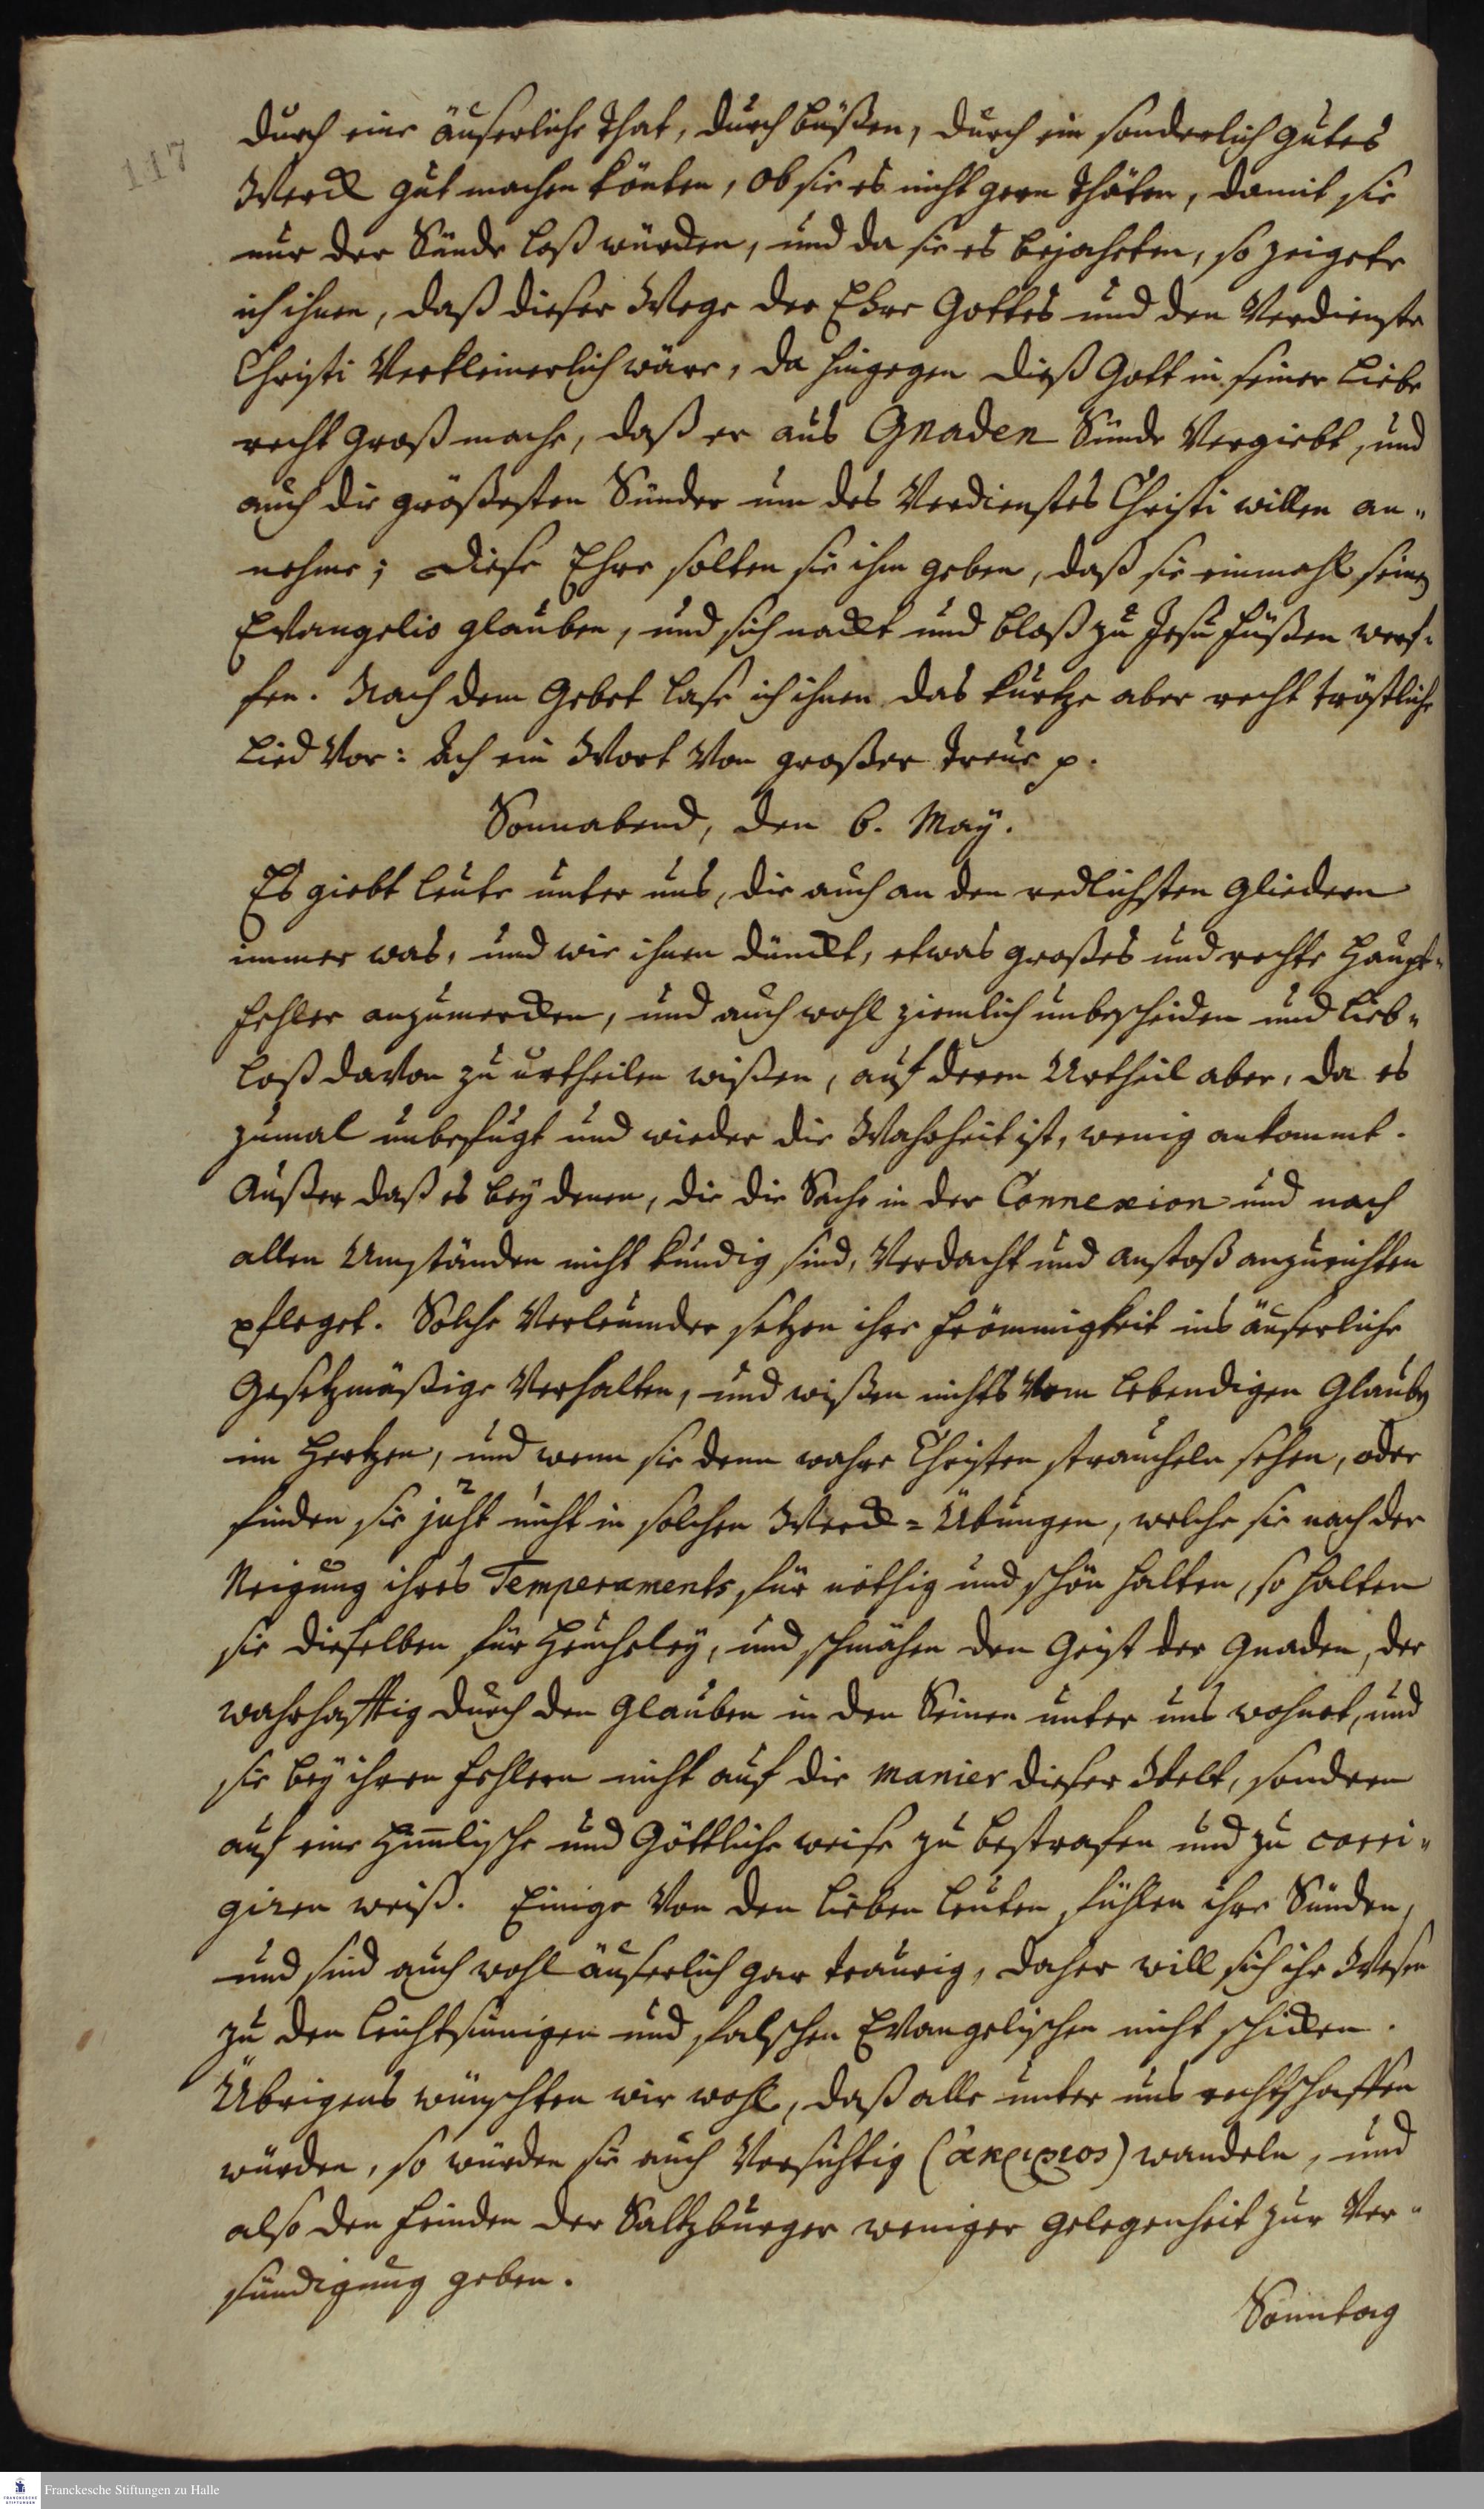 117
durch eine äuserliche That, durch büßen, durch ein sonderlich gutes
Werck gut machen könten, ob sie es nicht gern thäten, damit sie
nur der Sünde loß würden, und da sie es bejaheten, so zeigete
ich ihnen, daß dieser Wege der Ehre Gottes und den Verdienste
Christi Verkleinerlich wäre, da hingegen dieß Gott in seiner Liebe
recht groß mache, daß er aus Gnaden Sünde Vergiebt, und
auch die größesten Sünder um des Verdienstes Christi willen an„
nehme; diese Ehre solten sie ihm geben, daß sie einmahl seinem
Evangelio glauben, und sich nackt und bloß zu Jesu Füßen werf„
fen. Nach dem Gebet lase ich ihnen das kurtze aber recht tröstliche
Lied Vor: Ach ein Wort Von großer Treue p.
Sonnabend, den 6. May.
Es giebt Leute unter uns, die auch an den redlichsten Gliedern
immer was, und wie ihnen dünckt, etwas großes und rechte Haupt„
fehler anzumercken, und auch wohl ziemlich unbescheiden und lieb„
loß davon zu urtheilen wißen, auf deren Urtheil aber, da es
zumal unbefugt und wieder die Wahrheit ist, wenig ankommt.
Außer daß es bey denen, die die Sache in der Connexion und nach
allen Umständen nicht kundig sind, Verdacht und Anstoß anzurichten
pfleget. Solche Verleumder setzen ihre Frömmigkeit ins äuserliche
Gesetzmäßige Verhalten, und wißen nichts Vom lebendigen Glauben
im Hertzen, und wenn sie denn wahre Christen straucheln sehen, oder
finden sie just nicht in solchen Werck-Übungen, welche sie nach der
Neigung ihres Temperaments für nöthig und schön halten, so halten
sie dieselben für Heucheley, und schmähen den Geist der Gnaden, der
wahrhafftig durch den Glauben in den Seinen unter uns wohnet, und
sie bey ihren Fehlern nicht auf die manier dieser Welt, sondern
auf eine Himlische und Göttliche weise zu bestrafen und zu corri„
giren weiß. Einige Von den lieben Leuten fühlen ihre Sünden,
und sind auch wohl äuserlich gar traurig, daher will sich ihr Wesen
zu den leichtsinnigen und falschen Evangelischen nicht schicken.
Übrigens wünschten wir wohl, daß alle unter uns rechtschaffen
würden, so würden sie auch Vorsichtig () wandeln, und
also den Feinden der Saltzburger weniger Gelegenheit zur Ver„
sündigung geben.
Sonntag
Franckesche Stiftungen zu Halle